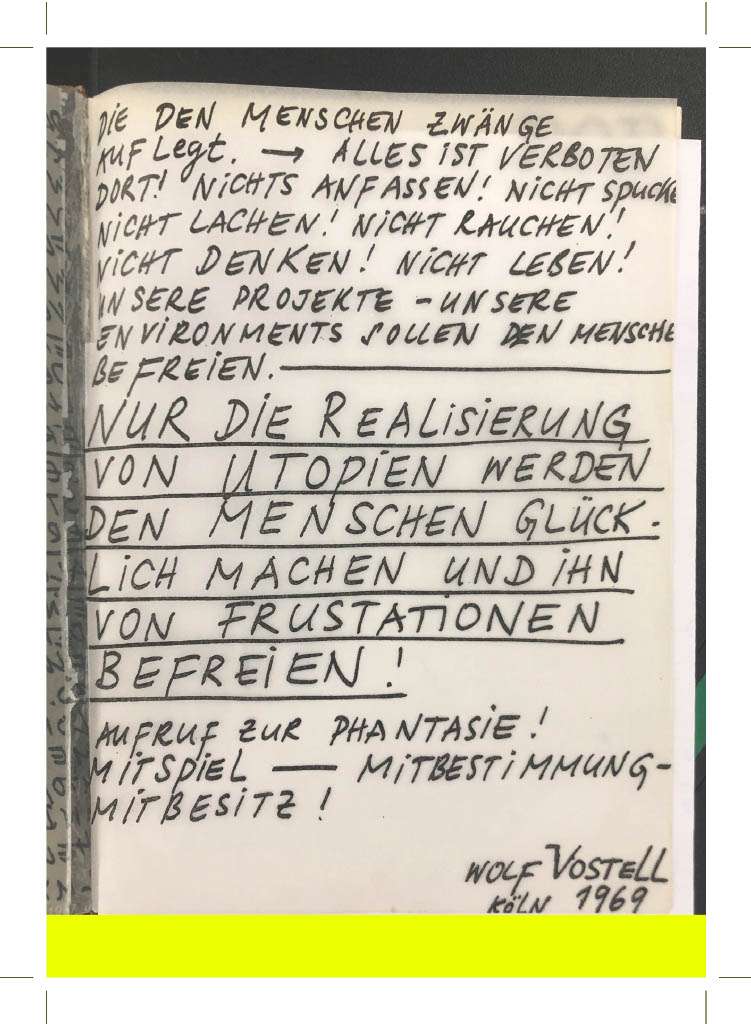 DIE DEN MENSCHEN ZWÄNGE
AUF Legt. → ALLES IST VERBOTEN
DORT! NICHTS ANFASSEN! NICHT SPUCKE
NICHT LACHEN! NICHT RAUCHEN!
NICHT DENKEN! NICHT LEBEN!
UNSERE PROJEKTE – UNSERE
ENVIRONMENTS SOLLEN DEN MENSCHE
BEFREIEN.
NUR DIE REALISIERUNG
VON UTOPIEN WERDEN
DEN MENSCHEN GLÜCK-
LICH MACHEN UND IHN
VON FRUSTATIONEN
BEFREIEN!
AUFRUF ZUR PHANTASIE!
MITSPIEL — MITBESTIMMUNG-
MITBESITZ!
WOLF VOSTELL
KÖLN 1969